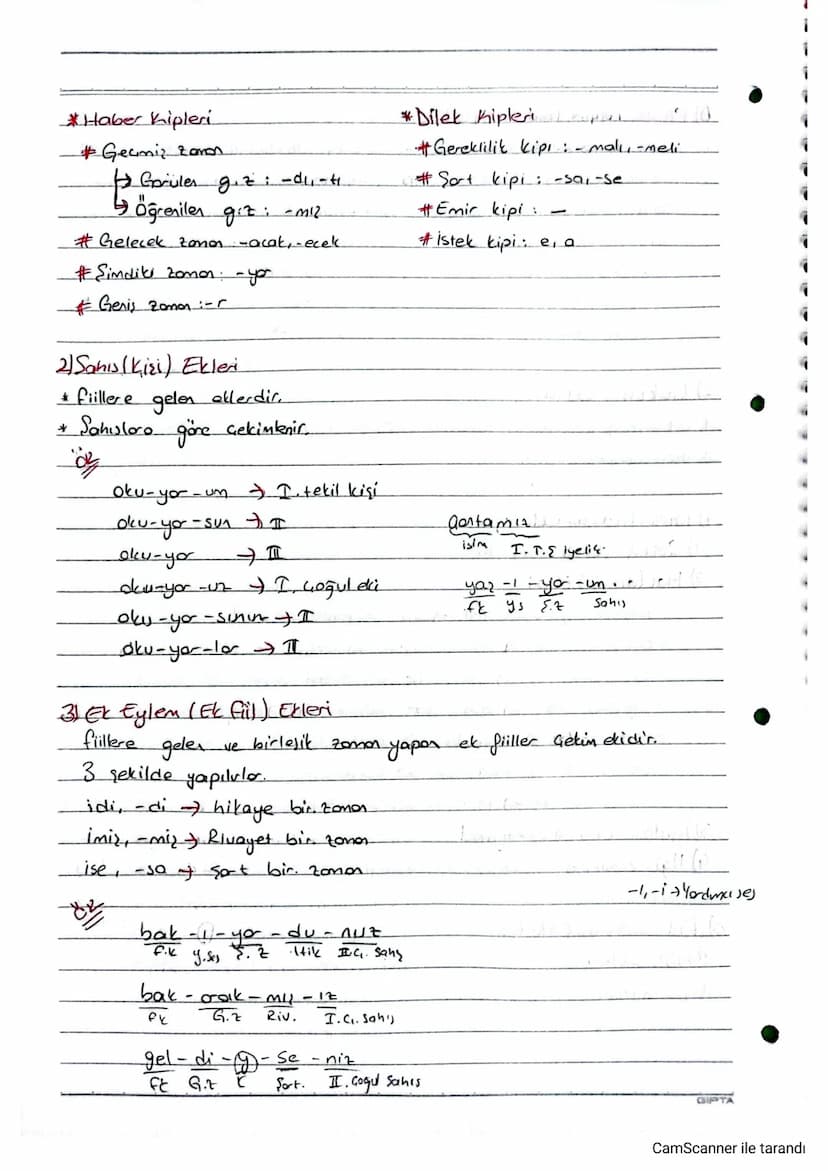 *Haber Kipleri
# Geçmiş zaman
↳ Görülen g.z : -dı, -tı
↳ Öğrenilen g.z : -mış
# Gelecek zaman -acak, -ecek
# Şimdiki zaman: -yor
# Geniş zaman :-r
*Dilek Kipleri
# Gereklilik kipi : -malı, -meli
# Şart kipi : -sa, -se
# Emir kipi : —
# İstek kipi : e, a
2) Şahıs (Kişi) Ekleri
* fiillere gelen eklerdir.
* Şahıslara göre çekimlenir.
Ör
oku-yor-um → I. tekil kişi
oku-yor-sun → II
oku-yor → III
oku-yor-uz → I. çoğul eki
oku-yor-sunuz → II
oku-yor-lar → III
çantamız
isim I. T.Ş iyelik
yaz -ı -yo -um
fk ys ş.z şahıs
3) Ek Eylem (Ek fiil) Ekleri
fiillere gelen ve birleşik zaman yapan ek fiiller çekim ekidir.
3 şekilde yapılırlar.
idi, -di → hikaye bir. zaman
imiş, -miş → Rivayet bir. zaman
ise, -sa → şart bir. zaman
-ı, -i → Yardımcı ses
Ör
bak -ı- yor - du - nuz
f.k y.ses ş.z Hik II.Çı. şahş
bak - acak - mış - ız
fk G.z Riv. I.Çı. şahış
gel - di - y - se - niz
fk G.z K Şart. II. çoğul şahıs
GIPTA
CamScanner ile tarandı